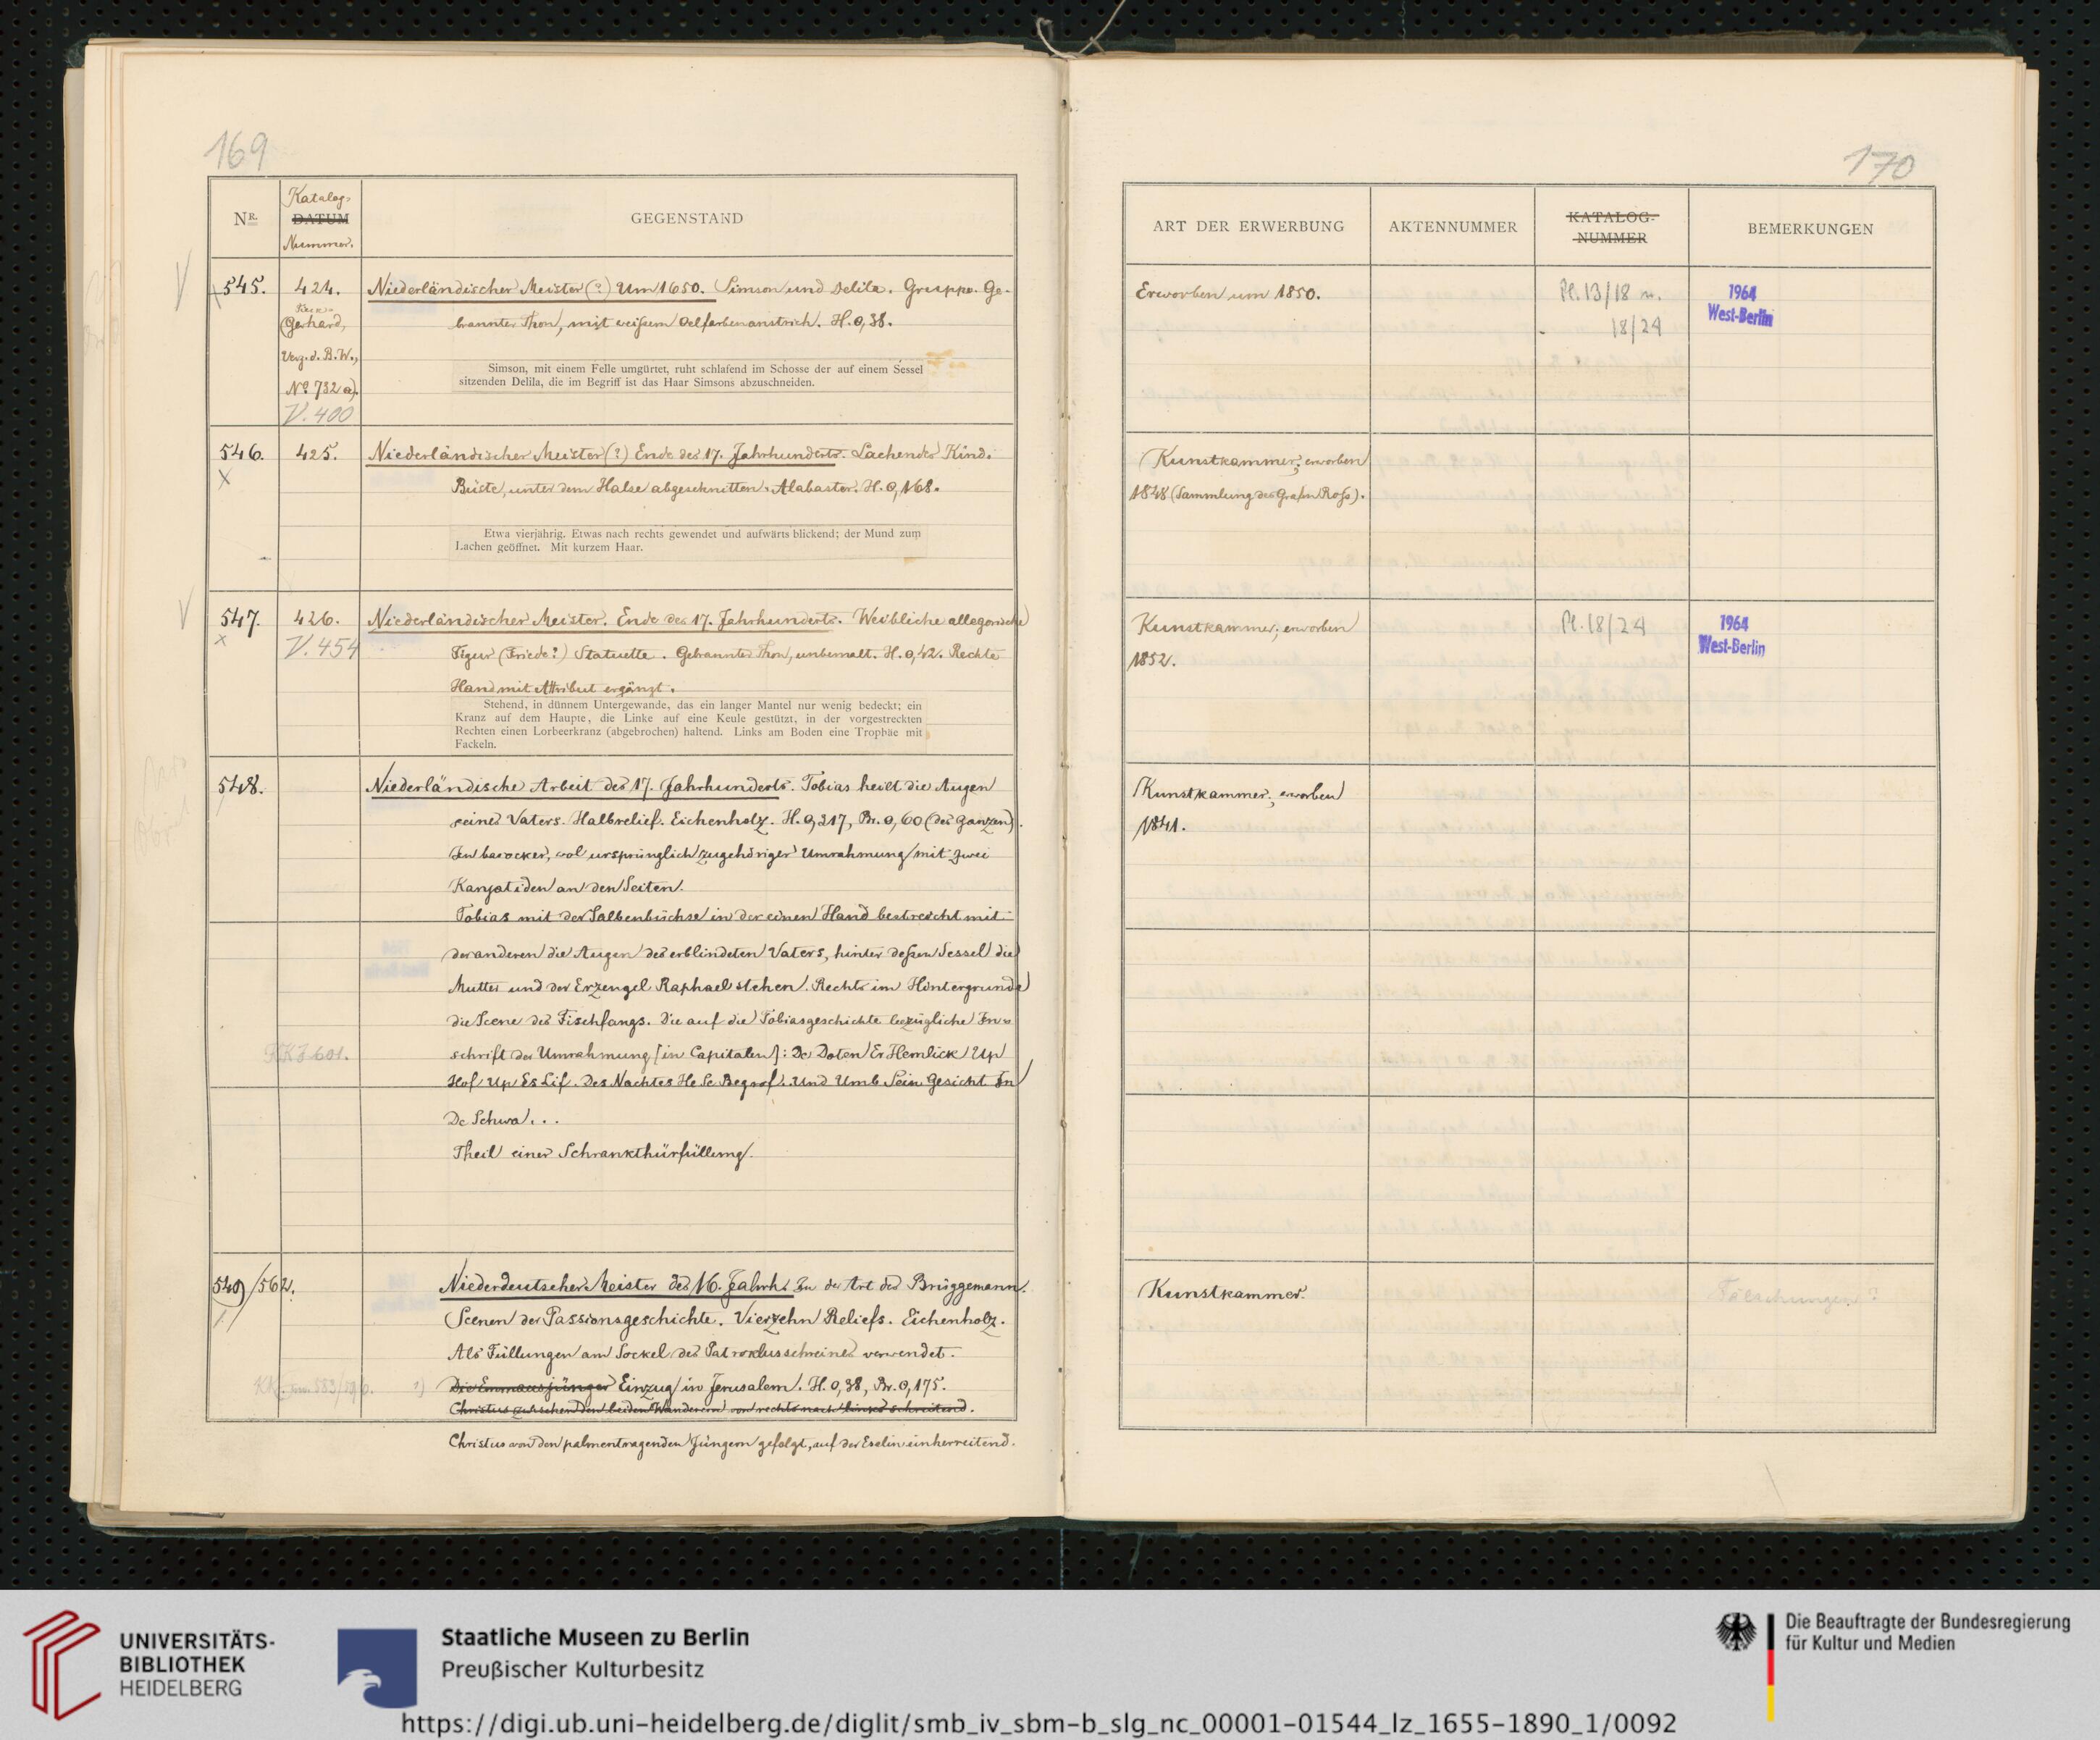 169
NR.
Katalog-
DATUM
Nummer.
GEGENSTAND
545.
424.
Gerhard,
Verz. d. B. W.,
No 732 a).
V. 400
Niederländischer Meister (?) Um 1650. Simson und Delila. Gruppe. Ge-
brannter Thon, mit weißem Oelfarbenanstrich. H. 0,38.
Simson, mit einem Felle umgürtet, ruht schlafend im Schosse der auf einem Sessel
sitzenden Delila, die im Begriff ist das Haar Simsons abzuschneiden.
546.
X
425.
Niederländischer Meister (?) Ende des 17. Jahrhunderts. Lachendes Kind.
Büste, unter dem Halse abgeschnitten. Alabaster. H. 0,168.
Etwa vierjährig. Etwas nach rechts gewendet und aufwärts blickend; der Mund zum
Lachen geöffnet. Mit kurzem Haar.
547.
X
426.
V. 454
Niederländischer Meister. Ende des 17. Jahrhunderts. Weibliche allegorische
Figur (Friede?) Statuette. Gebrannter Thon, unbemalt. H. 0,42. Rechte
Hand mit Attribut ergänzt.
Stehend, in dünnem Untergewande, das ein langer Mantel nur wenig bedeckt; ein
Kranz auf dem Haupte, die Linke auf eine Keule gestützt, in der vorgestreckten
Rechten einen Lorbeerkranz (abgebrochen) haltend. Links am Boden eine Trophäe mit
Fackeln.
548.
Niederländische Arbeit des 17. Jahrhunderts. Tobias heilt die Augen
seines Vaters. Halbrelief. Eichenholz. H. 0,217, Br. 0,60 (des Ganzen).
In barocker, wol ursprünglich zugehöriger Umrahmung mit zwei
Karyatiden an den Seiten.
Tobias mit der Salbenbüchse in der einen Hand bestreicht mit
der anderen die Augen des erblindeten Vaters, hinter deßen Sessel die
Mutter und der Erzengel Raphael stehen. Rechts im Hintergrunde
die Scene des Fischfangs. Die auf die Tobiasgeschichte bezügliche In-
schrift der Umrahmung [in Capitalen]: De Doten Er Hemlick Up
Hof Up Es Lif. Des Nachtes He Se Begrof. Und Umb Sein Gesicht In
De Schwa...
Theil einer Schrankthürfüllung.
549/562.
Niederdeutscher Meister des 16. Jahrh. In der Art des Brüggemann.
Scenen der Passionsgeschichte. Vierzehn Reliefs. Eichenholz.
Als Füllungen am Sockel des Patroklusschreines verwendet.
1) Die Emmausjünger Einzug in Jerusalem. H. 0,38, Br. 0,175.
Christus zwischen den beiden Wanderern von rechts nach links schreitend.
Christus von den palmentragenden Jüngern gefolgt, auf der Eselin einherreitend.
170
ART DER ERWERBUNG
AKTENNUMMER
KATALOG-
NUMMER
BEMERKUNGEN
Erworben um 1850.
Pl. 13/18 u.
18/24
1964
West-Berlin
Kunstkammer; erworben
1848 (Sammlung des Grafen Roß).
Kunstkammer; erworben
1852.
Pl. 18/24
1964
West-Berlin
Kunstkammer; erworben
1841.
Kunstkammer.
Fälschungen?
UNIVERSITÄTS-
BIBLIOTHEK
HEIDELBERG
Staatliche Museen zu Berlin
Preußischer Kulturbesitz
Die Beauftragte der Bundesregierung
für Kultur und Medien
https://digi.ub.uni-heidelberg.de/diglit/smb_iv_sbm-b_slg_nc_00001-01544_lz_1655-1890_1/0092